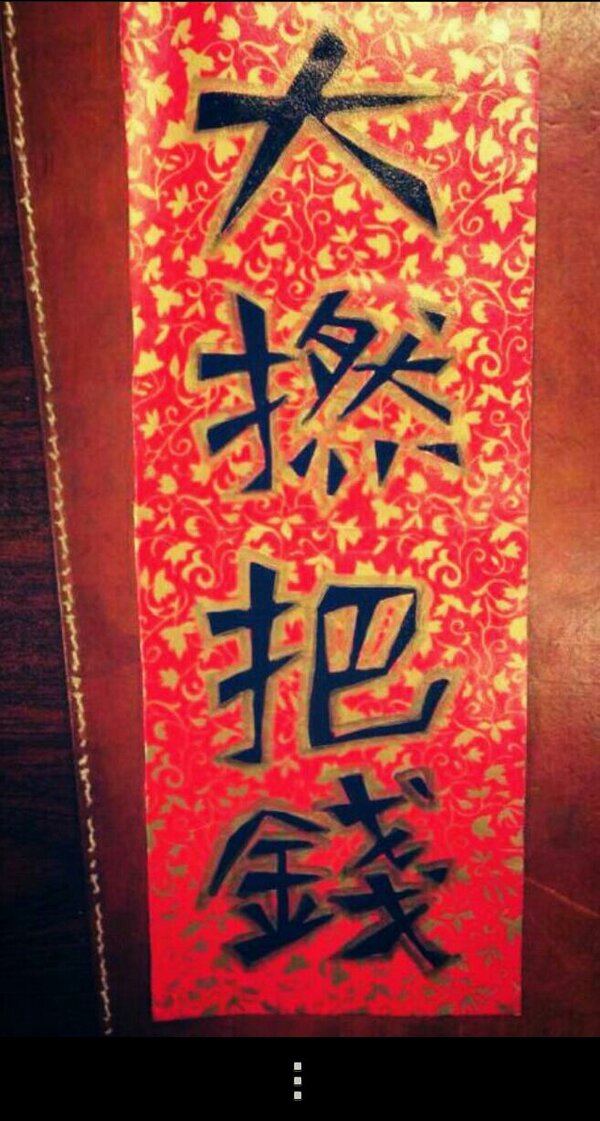 大撚把錢